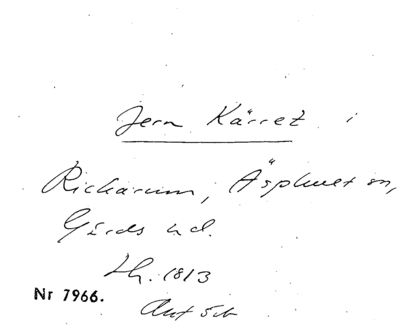 Jern Kärret i
Rickarum, Äsphult sn,
Gärds hd.
Lh. 1813
Nr 7966.
Avt Sch